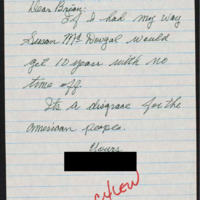 Dear Brian:
If I had my way
Susan McDougal would
get 10 years with no
time off.
Its a disgrace for the
American people.
Yours